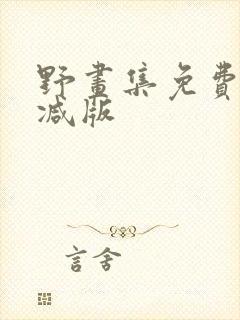 野畫集免費
减版
言舍